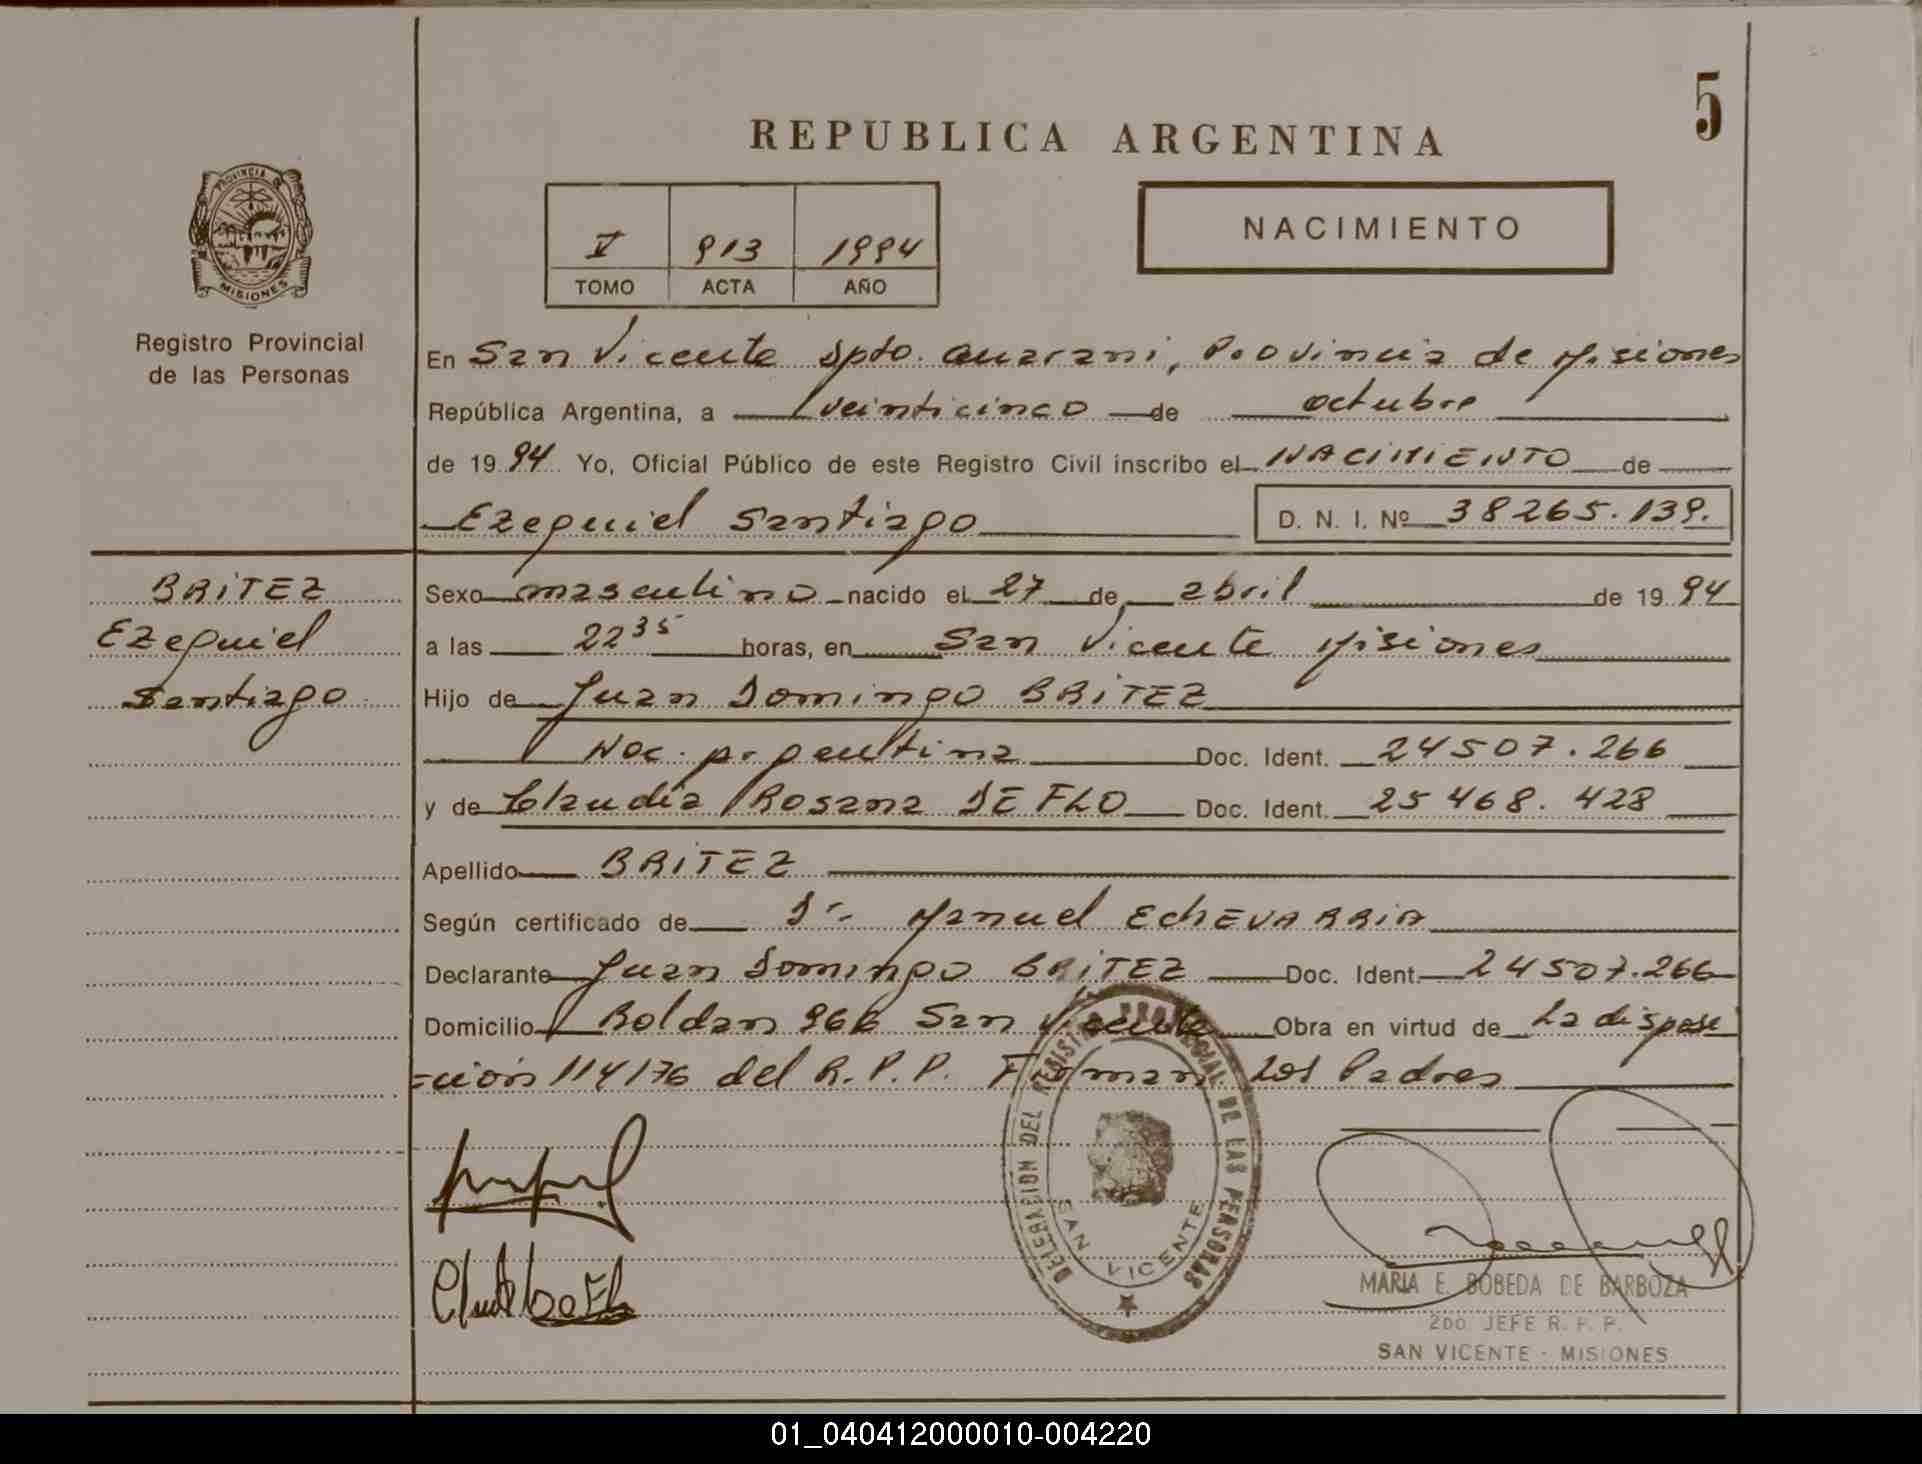 5
REPUBLICA ARGENTINA
PROVINCIA DE
MISIONES
Registro Provincial
de las Personas
V 913 1994
TOMO ACTA AÑO
NACIMIENTO
En San Vicente Dpto. Guarani, Provincia de Misiones
República Argentina, a veinticinco de octubre
de 1994 Yo, Oficial Público de este Registro Civil inscribo el NACIMIENTO de
Ezequiel Santiago D. N. I. Nº 38265.139.
BRITEZ
Ezequiel
Santiago
Sexo masculino nacido el 27 de abril de 1994
a las 22 35 horas, en San Vicente Misiones
Hijo de Juan Domingo BRITEZ
Nac. Argentina Doc. Ident. 24507.266
y de Claudia Rosana DE FLO Doc. Ident. 25468.428
Apellido BRITEZ
Según certificado de Dr. Manuel EchEVARRIA
Declarante Juan Domingo BRITEZ Doc. Ident. 24507.266
Domicilio Roldan 966 San Vicente Obra en virtud de La disposi
ción 114/76 del R. P. P. Firman los Padres
DELEGACION DEL REGISTRO PROVINCIAL DE LAS PERSONAS
SAN VICENTE
MARIA E. BOBEDA DE BARBOZA
2DO JEFE R. P. P.
SAN VICENTE - MISIONES
01_040412000010-004220